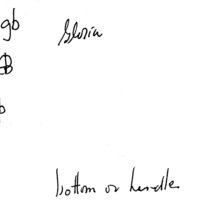 gb Gloria
B
b
bottom or handle